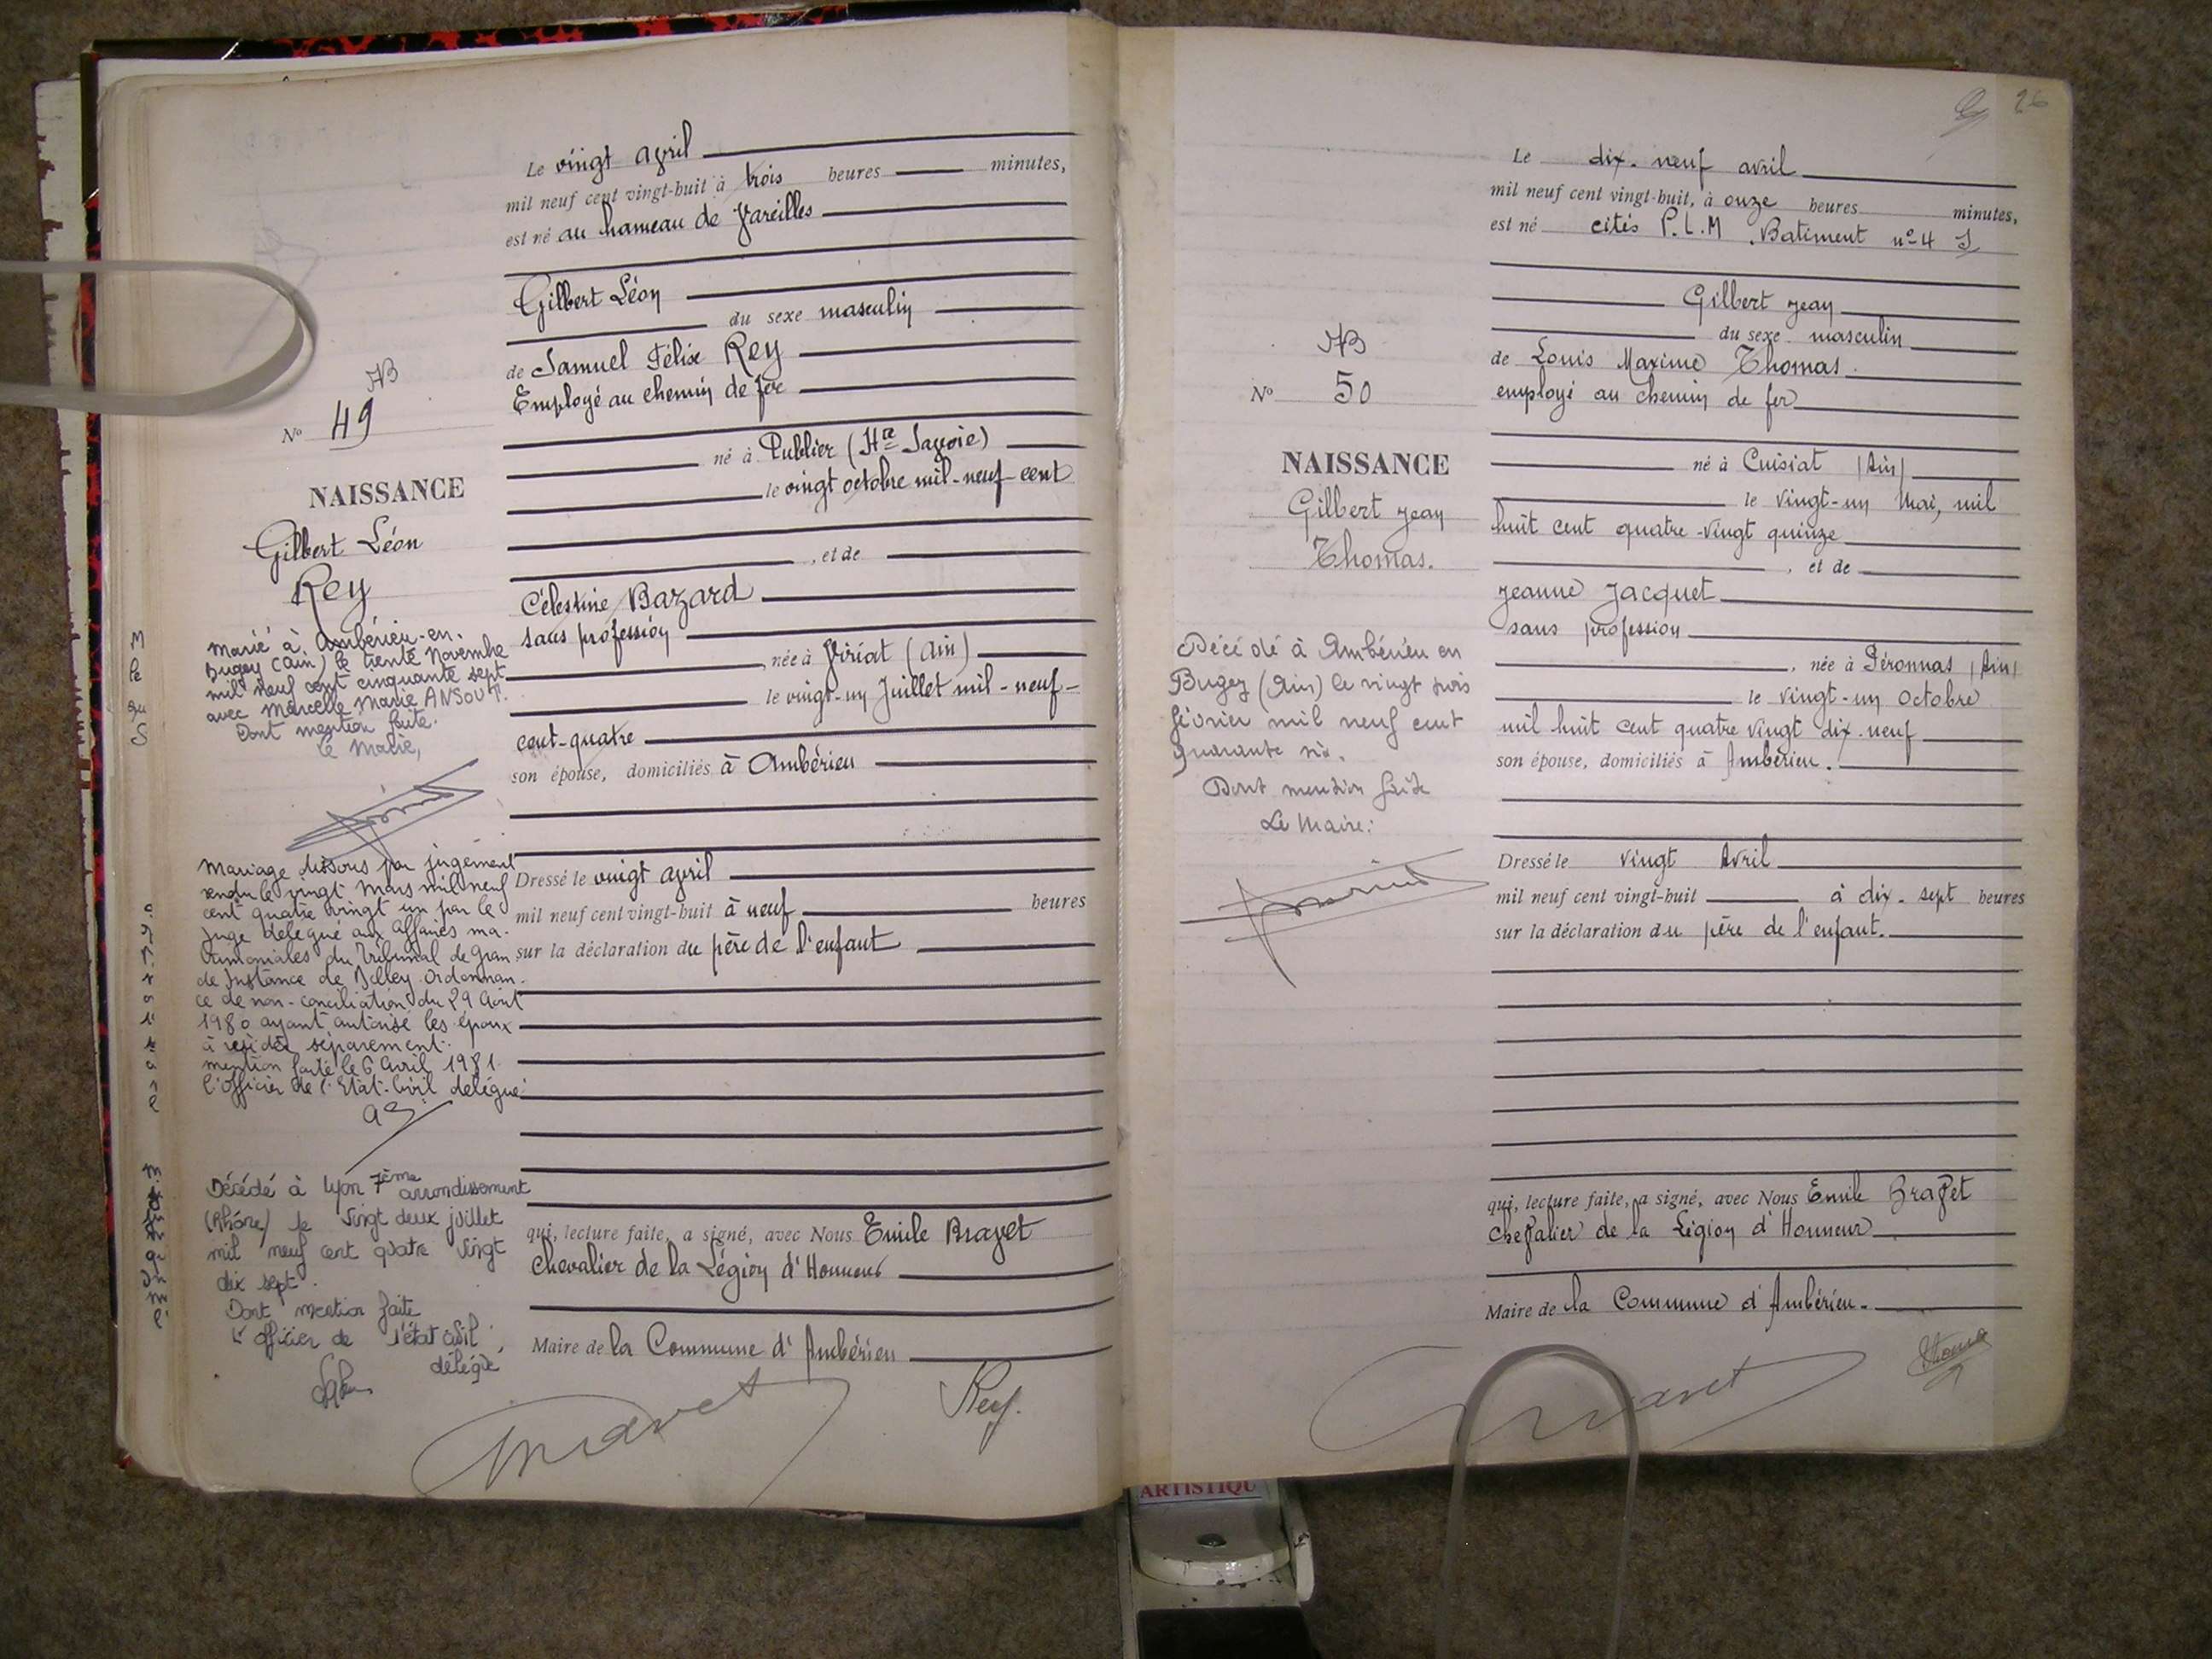 Le vingt avril
mil neuf cent vingt-huit à trois heures minutes,
est né au hameau de Vareilles
Gilbert Léon
du sexe masculin
de Samuel Félix Rey
Employé au chemin de fer
né à Publier (Hte Savoie)
le vingt octobre mil-neuf-cent
, et de
Célestine Bazard
sans profession
, née à Viriat (Ain)
le vingt-un Juillet mil-neuf-
cent-quatre
son épouse, domiciliés à Ambérieu
Dressé le vingt avril
mil neuf cent vingt-huit à neuf heures
sur la déclaration du père de l'enfant
qui, lecture faite, a signé, avec Nous Emile Bravet
Chevalier de la Légion d'Honneur
Maire de la Commune d'Ambérieu
Bravet
Rey.
AB
No 49
NAISSANCE
Gilbert Léon
Rey
Marié à Ambérieu-en-
Bugey (Ain) le trente Novembre
mil neuf cent cinquante sept
avec Marcelle Marie
Dont mention faite.
Le Maire,
Mariage dissous par jugement
rendu le vingt Mars mil neuf
cent quatre vingt un par le
Juge délégué aux affaires ma-
trimoniales du Tribunal de Gran
de Instance de Belley. Ordonnan-
ce de non-conciliation du 29 Août
1980 ayant autorisé les époux
à résider séparément.
mention faite le 6 Avril 1981
l'Officier de l'Etat-Civil délégué
Décédé à Lyon 7ème arrondissement
(Rhône) le vingt deux juillet
mil neuf cent quatre vingt
dix sept.
Dont mention faite
L'officier de l'état civil,
délégué
26
Le dix-neuf avril
mil neuf cent vingt-huit, à onze heures minutes,
est né cités P.L.M. Batiment no 4
Gilbert Jean
du sexe masculin
de Louis Maxime Thomas
employé au chemin de fer
né à Cuisiat (Ain)
le vingt-un Mai, mil
huit cent quatre-vingt quinze
, et de
Jeanne Jacquet
sans profession
, née à Péronnas (Ain)
le vingt-un Octobre
mil huit cent quatre vingt dix-neuf
son épouse, domiciliés à Ambérieu.
Dressé le vingt Avril
mil neuf cent vingt-huit à dix-sept heures
sur la déclaration du père de l'enfant.
qui, lecture faite, a signé, avec Nous Emile Bravet
Chevalier de la Légion d'Honneur
Maire de la Commune d'Ambérieu.
Bravet
Thomas
AB
No 50
NAISSANCE
Gilbert Jean
Thomas.
Décédé à Ambérieu en
Bugey (Ain) le vingt trois
février mil neuf cent
quarante six.
Dont mention faite
Le Maire:
ARTISTIQU